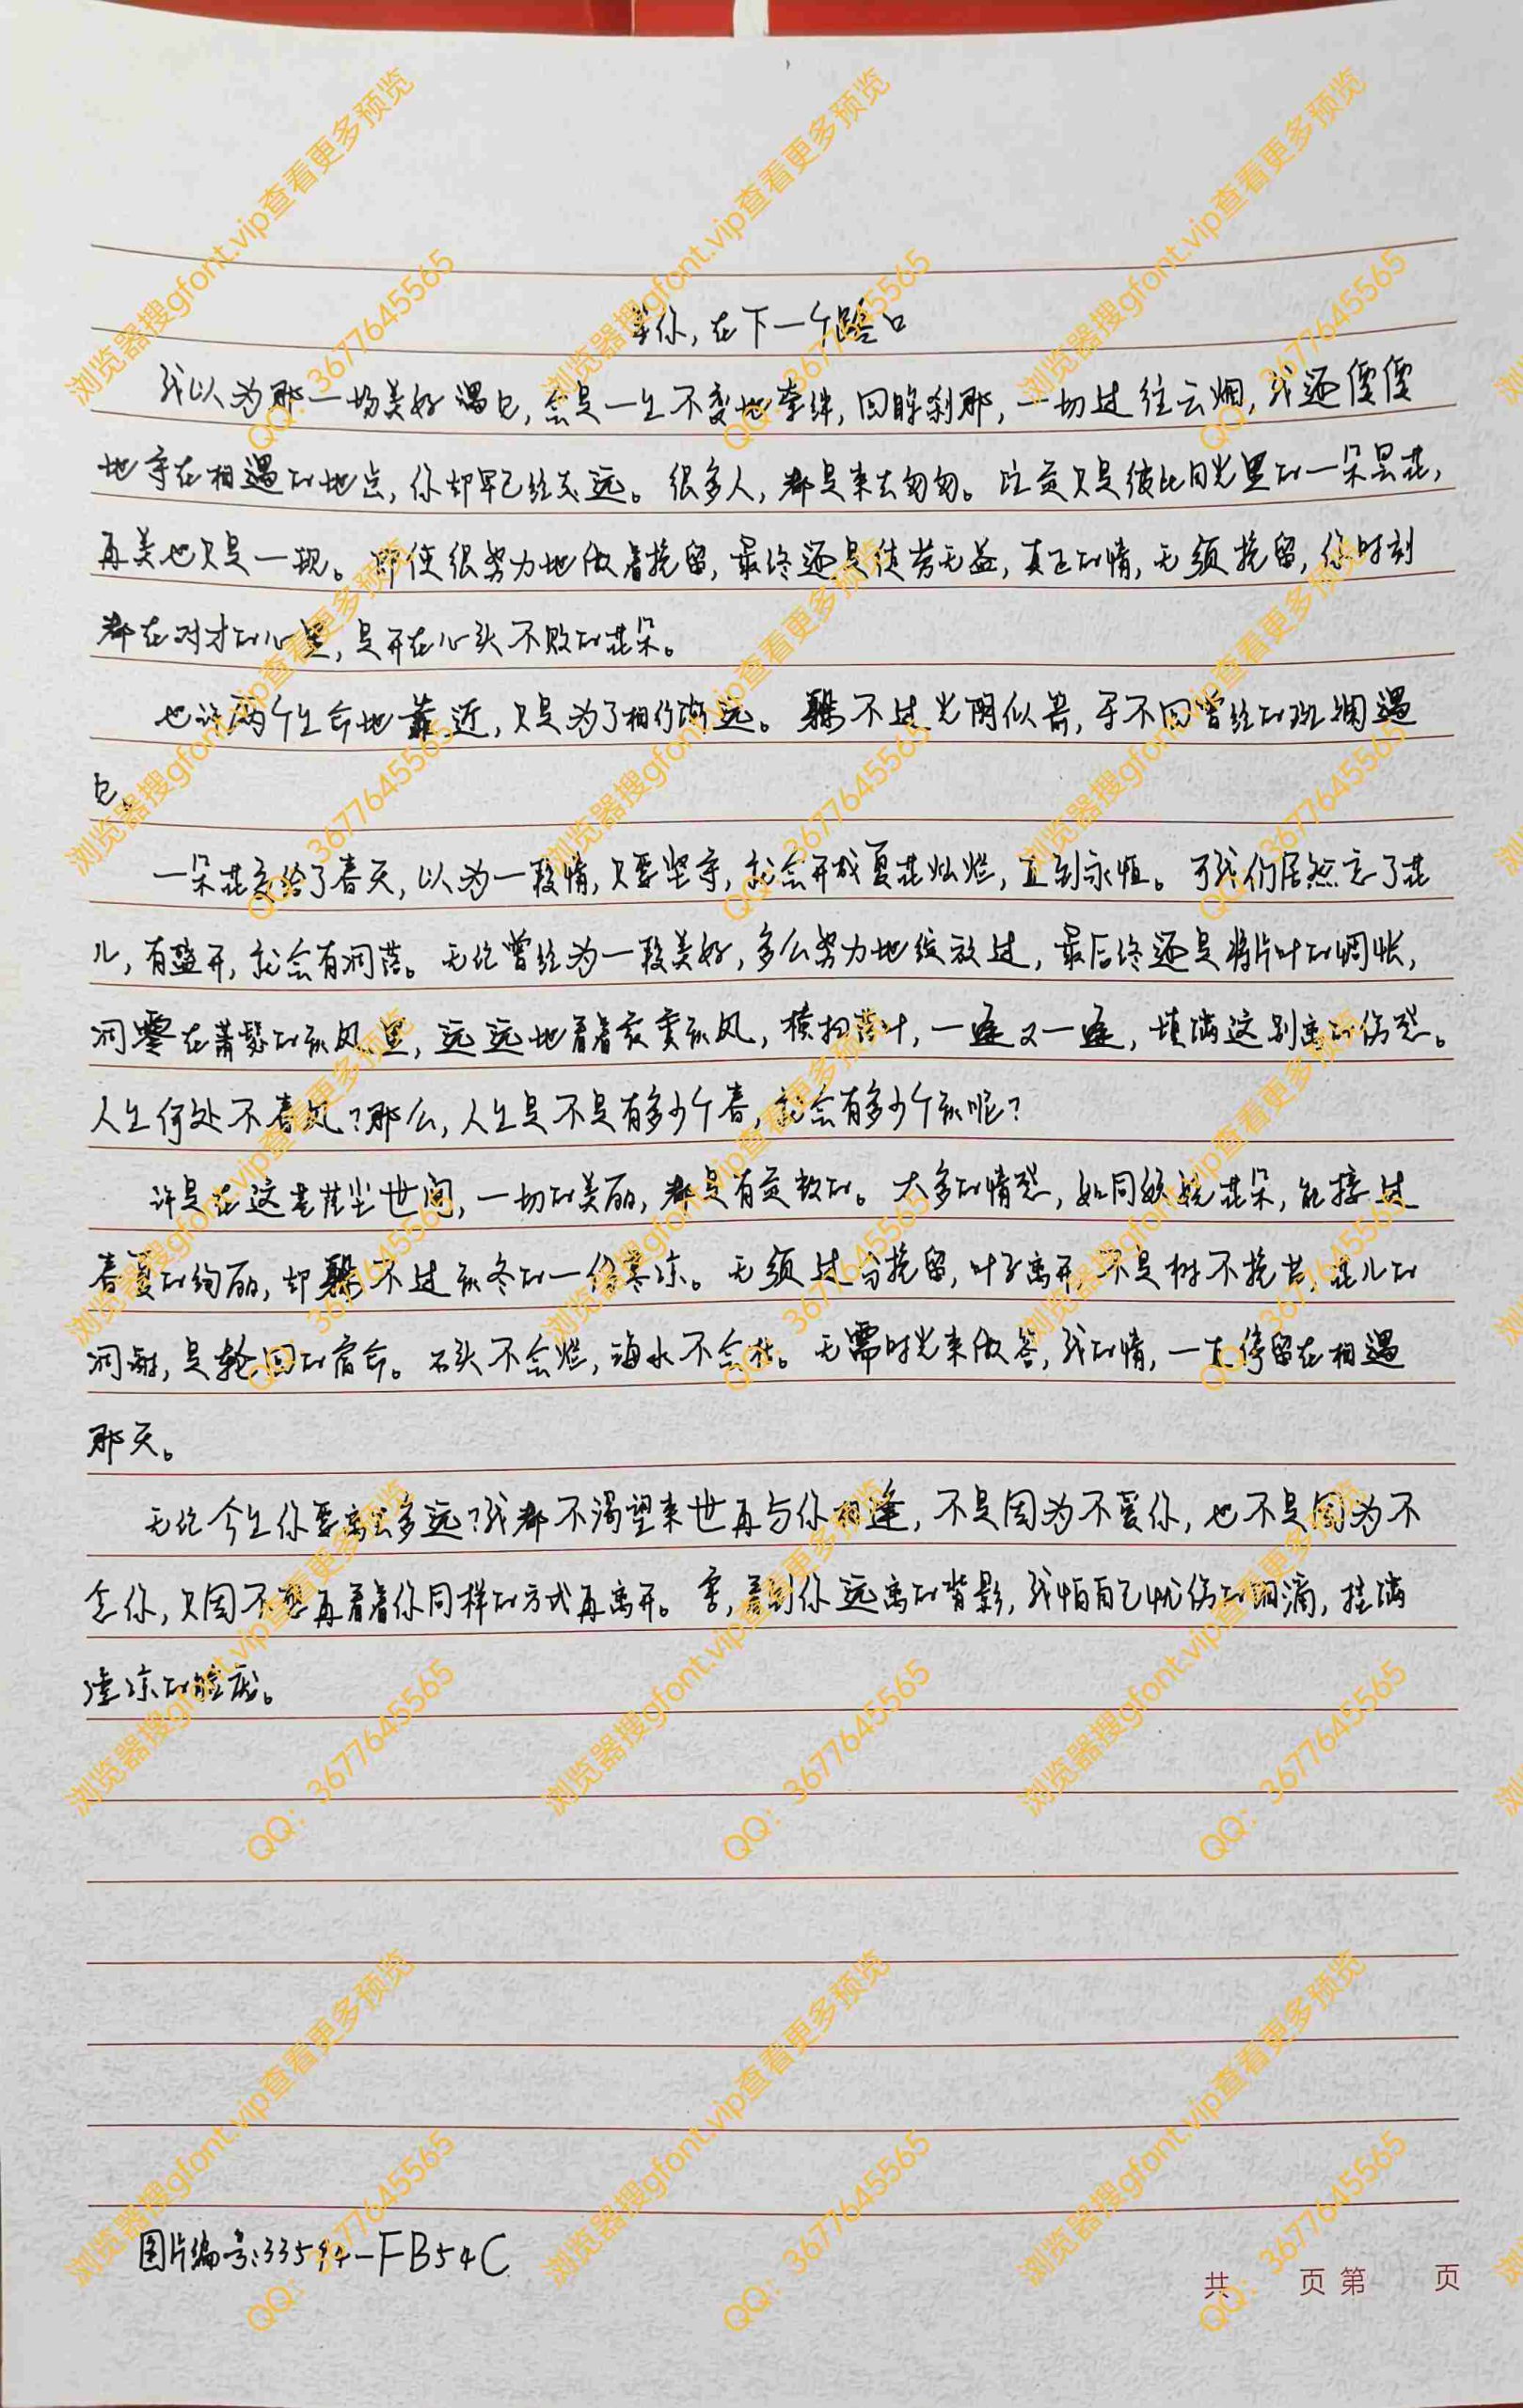 等你，在下一个路口
我以为那一场美好遇见，会是一生不变地牵绊，回眸刹那，一切过往云烟，我还傻傻
地守在相遇的地点，你却早已经走远。很多人，都是来去匆匆。注定只是彼此目光里的一朵昙花，
再美也只是一现。即使很努力地做着挽留，最终还是徒劳无益，真正的情，无须挽留，你时刻
都在对方的心里，是开在心头不败的花朵。
也许两个生命地靠近，只是为了相行渐远。躲不过光阴似箭，守不回曾经的斑斓遇
见。
一朵花交给了春天，以为一段情，只要坚守，就会开成夏花灿烂，直到永恒。可我们居然忘了花
儿，有盛开，就会有凋落。无论曾经为一段美好，多么努力地绽放过，最后终还是将片叶的惆怅，
凋零在萧瑟的秋风里，远远地看着寂寞秋风，横扫落叶，一遍又一遍，填满这别离的伤愁。
人生何处不春风？那么，人生是不是有多少个春，就会有多少个秋呢？
许是在这苍茫尘世间，一切的美丽，都是有定数的。太多的情愁，如同妖娆花朵，能接过
春夏的绚丽，却躲不过秋冬的一份寒凉。无须过分挽留，叶子离开，不是树不挽苦，花儿的
凋谢，是轮回的宿命。石头不会烂，海水不会枯。无需时光来做答，我的情，一直停留在相遇
那天。
无论今生你要离去多远？我都不渴望来世再与你相逢，不是因为不爱你，也不是因为不
念你，只因不想再看着你同样的方式再离开。害，看到你远离的背影，我怕自己忧伤的泪滴，挂满
凄凉的脸庞。
图片编号：33594-FB54C
共 页 第 页
浏览器搜gfont.vip查看更多预览
QQ：3677645565